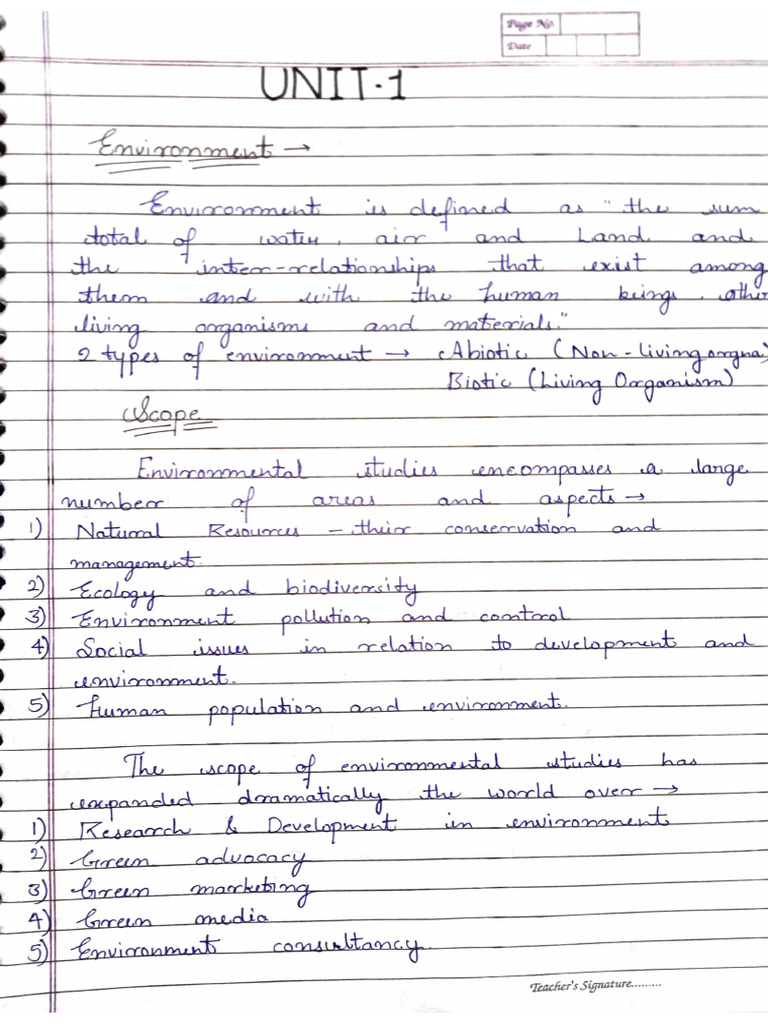 Page No.
Date
UNIT-1
Environment →
Environment is defined as "the sum
total of water, air and Land and
the inter-relationships that exist among
them and with the human beings, other
living organisms and materials."
2 types of environment → Abiotic (Non-living orgna)
Biotic (Living Organism)
Scope
Environmental studies encompasses a large
number of areas and aspects →
1) Natural Resources - their conservation and
management.
2) Ecology and biodiversity
3) Environment pollution and control
4) Social issues in relation to development and
environment.
5) human population and environment.
The scope of environmental studies has
expanded dramatically the world over →
1) Research & Development in environment
2) Green advocacy
3) Green marketing
4) Green media
5) Environment consultancy.
Teacher's Signature.........